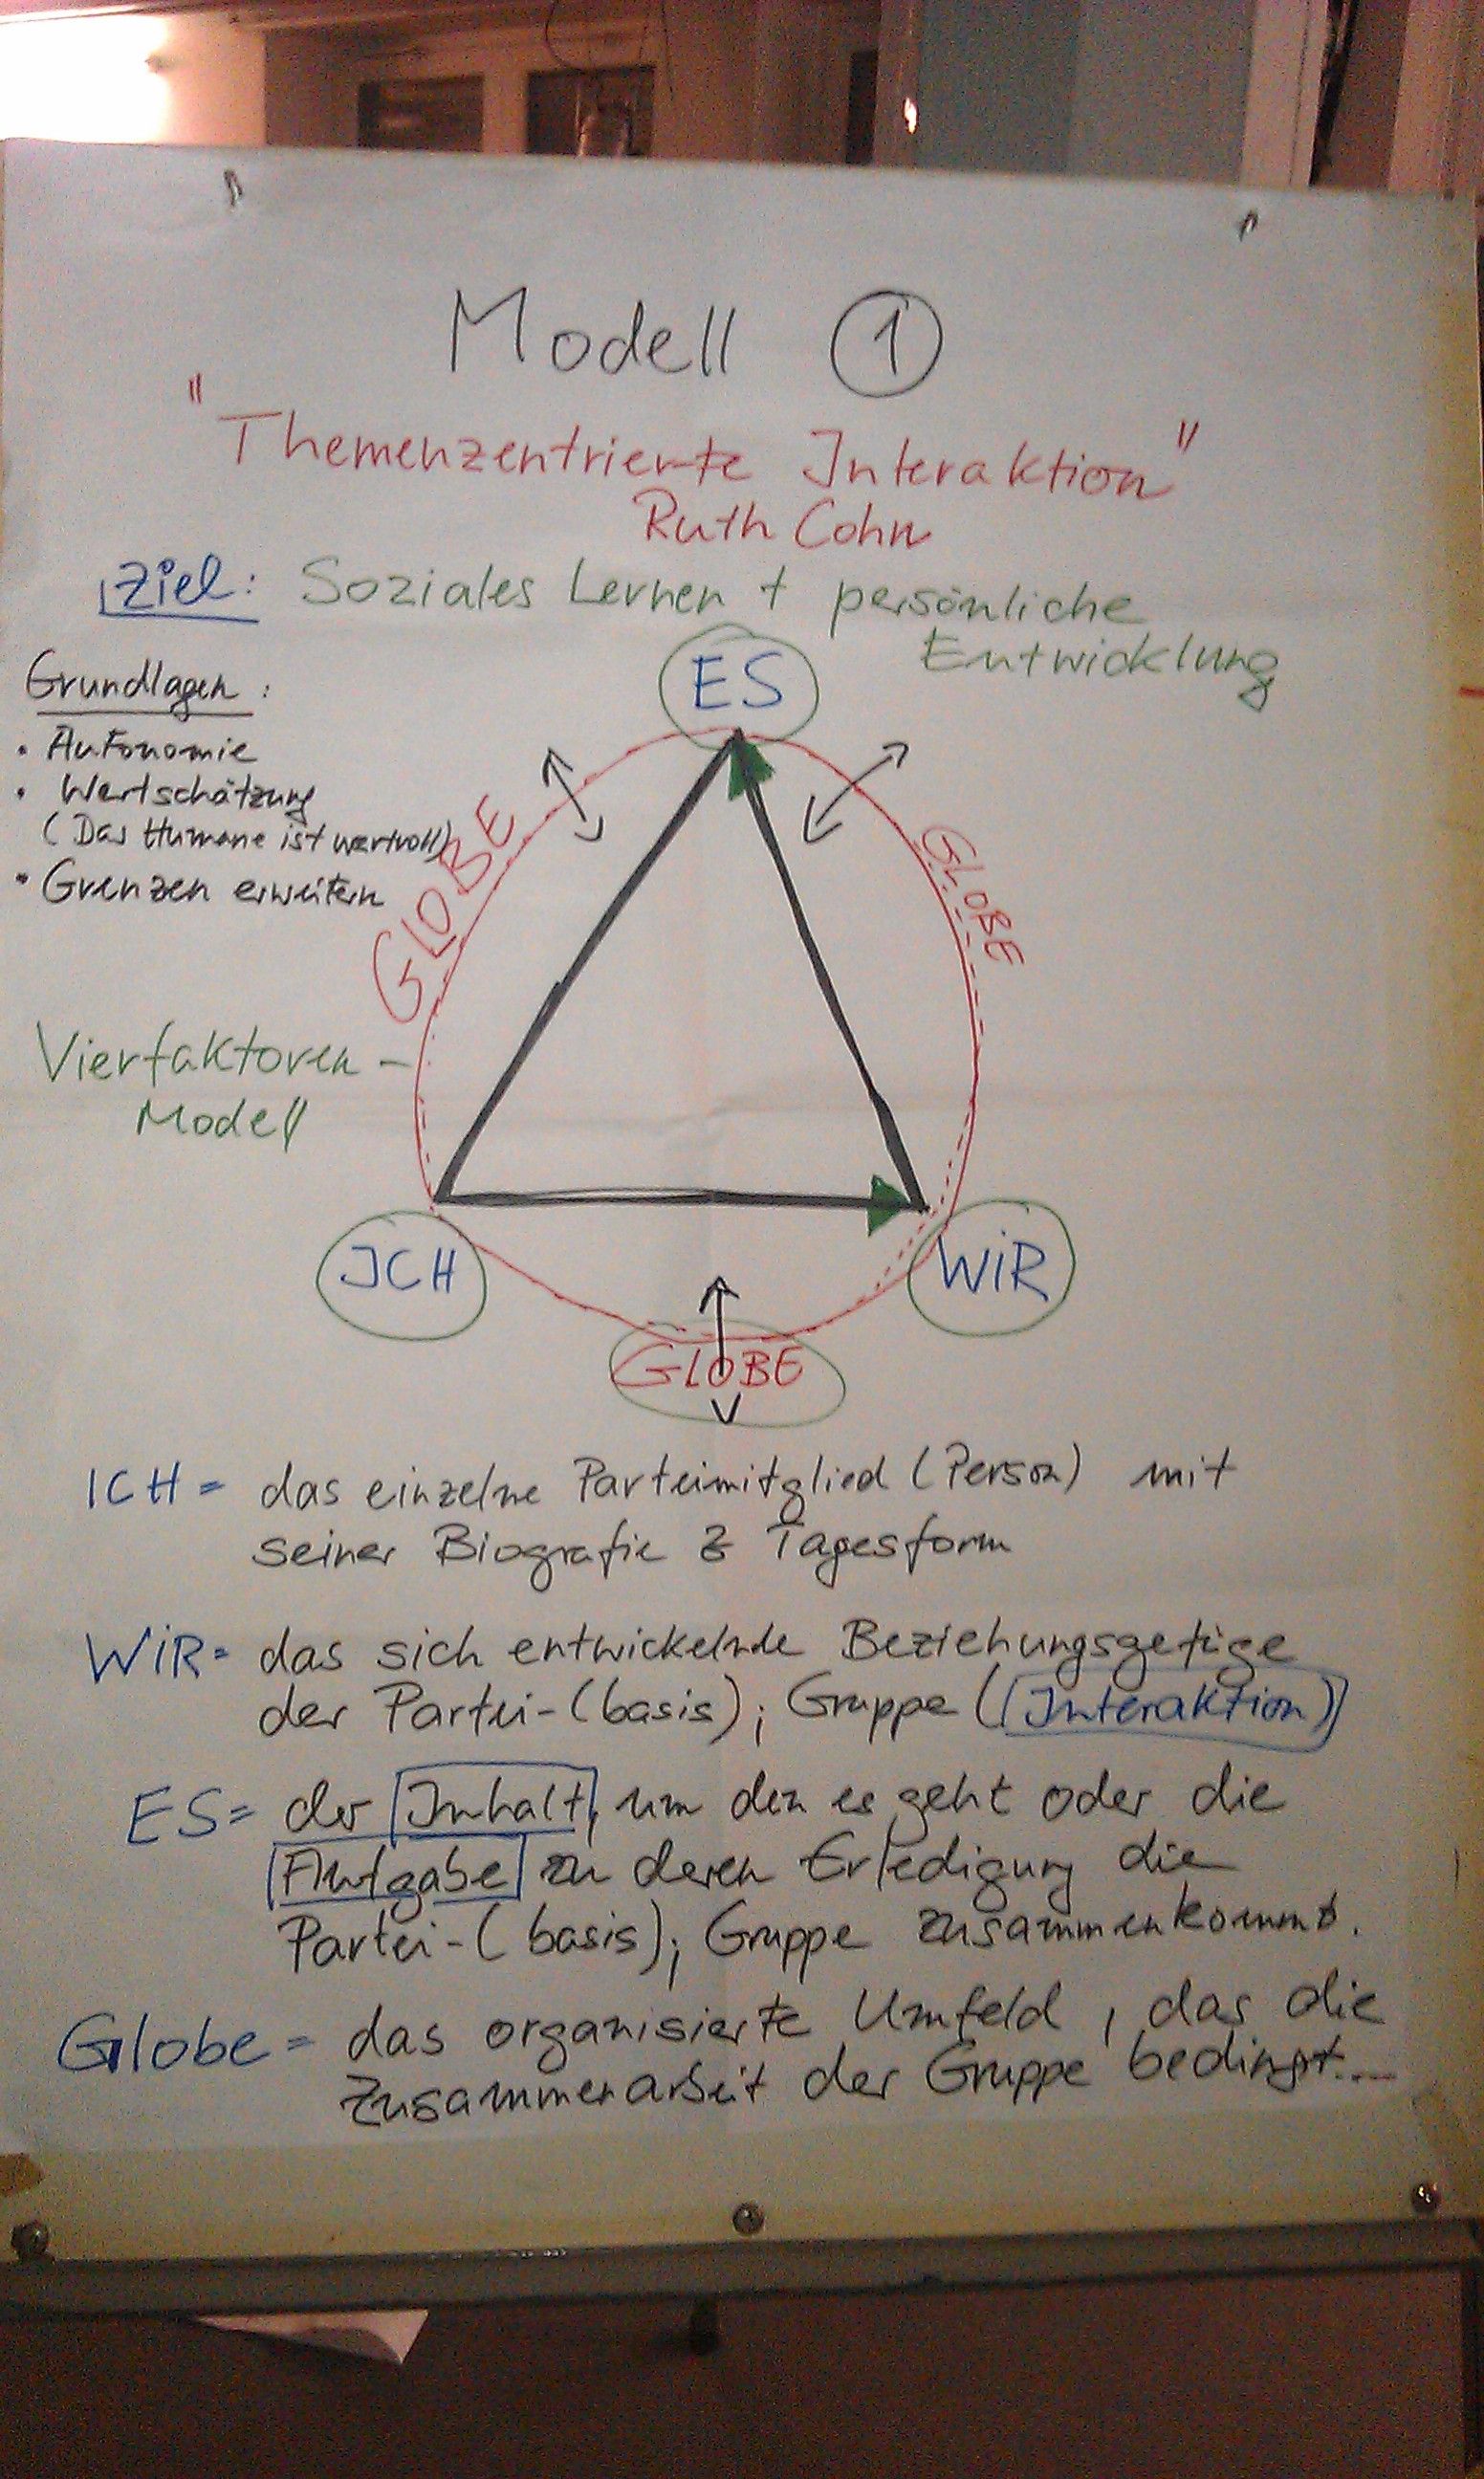 Modell 1
"Themenzentrierte Interaktion"
Ruth Cohn
Ziel: Soziales Lernen + persönliche
Entwicklung
Grundlagen:
• Autonomie
• Wertschätzung
(Das Humane ist wertvoll)
• Grenzen erweitern
Vierfaktoren-
Modell
ES
GLOBE
GLOBE
ICH
WIR
GLOBE
ICH = das einzelne Parteimitglied (Person) mit
seiner Biografie & Tagesform
WIR = das sich entwickelnde Beziehungsgefüge
der Partei-(basis); Gruppe (Interaktion)
ES = der Inhalt, um den es geht oder die
Aufgabe zu deren Erledigung die
Partei-(basis); Gruppe zusammenkommt.
Globe = das organisierte Umfeld, das die
Zusammenarbeit der Gruppe bedingt...